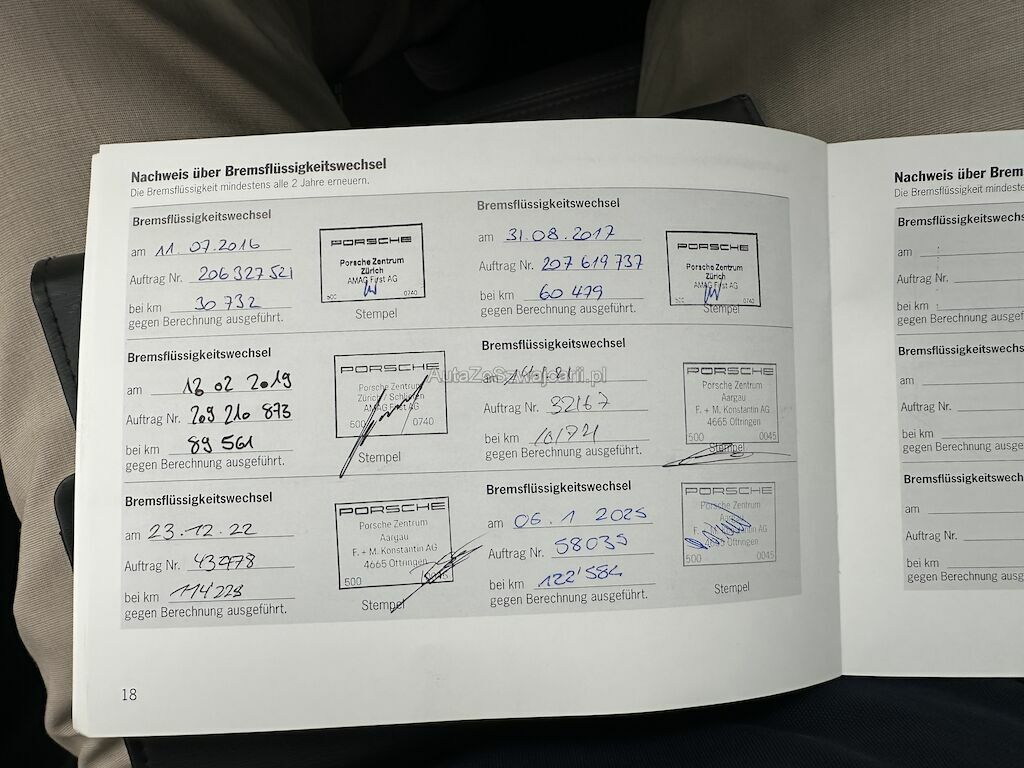 Nachweis über Bremsflüssigkeitswechsel
Die Bremsflüssigkeit mindestens alle 2 Jahre erneuern.
Bremsflüssigkeitswechsel
am 11.07.2016
Auftrag Nr. 206 327 521
bei km 30 732
gegen Berechnung ausgeführt.
PORSCHE
Porsche Zentrum
Zürich
AMAG First AG
500 0740
Stempel
Bremsflüssigkeitswechsel
am 31.08.2017
Auftrag Nr. 207 619 737
bei km 60 479
gegen Berechnung ausgeführt.
PORSCHE
Porsche Zentrum
Zürich
AMAG First AG
500 0740
Stempel
Bremsflüssigkeitswechsel
am 02 2019
Auftrag Nr. 209 210 873
bei km 89 561
gegen Berechnung ausgeführt.
PORSCHE
Porsche Zentrum
Zürich / Schlieren
AMAG First AG
500 0740
Stempel
AutaZeSzwajcarii.pl
Bremsflüssigkeitswechsel
am
Auftrag Nr. 32167
bei km 101721
gegen Berechnung ausgeführt.
PORSCHE
Porsche Zentrum
Aargau
F. + M. Konstantin AG
4665 Oftringen
500 0045
Stempel
Bremsflüssigkeitswechsel
am 23.12.22
Auftrag Nr. 43978
bei km 114'228
gegen Berechnung ausgeführt.
PORSCHE
Porsche Zentrum
Aargau
F. + M. Konstantin AG
4665 Oftringen
500
Stempel
Bremsflüssigkeitswechsel
am 06.1 2025
Auftrag Nr. 58035
bei km 122'584
gegen Berechnung ausgeführt.
PORSCHE
Porsche Zentrum
Aargau
F. + M. Konstantin AG
4665 Oftringen
500 0045
Stempel
18
Nachweis über
Die Bremsflüssigkeit
am
Auftrag Nr.
bei km
gegen Berechnung ausgeführt
am
Auftrag Nr.
bei km
gegen Berechnung ausgeführt
am
Auftrag Nr.
bei km
gegen Berechnung ausgeführt